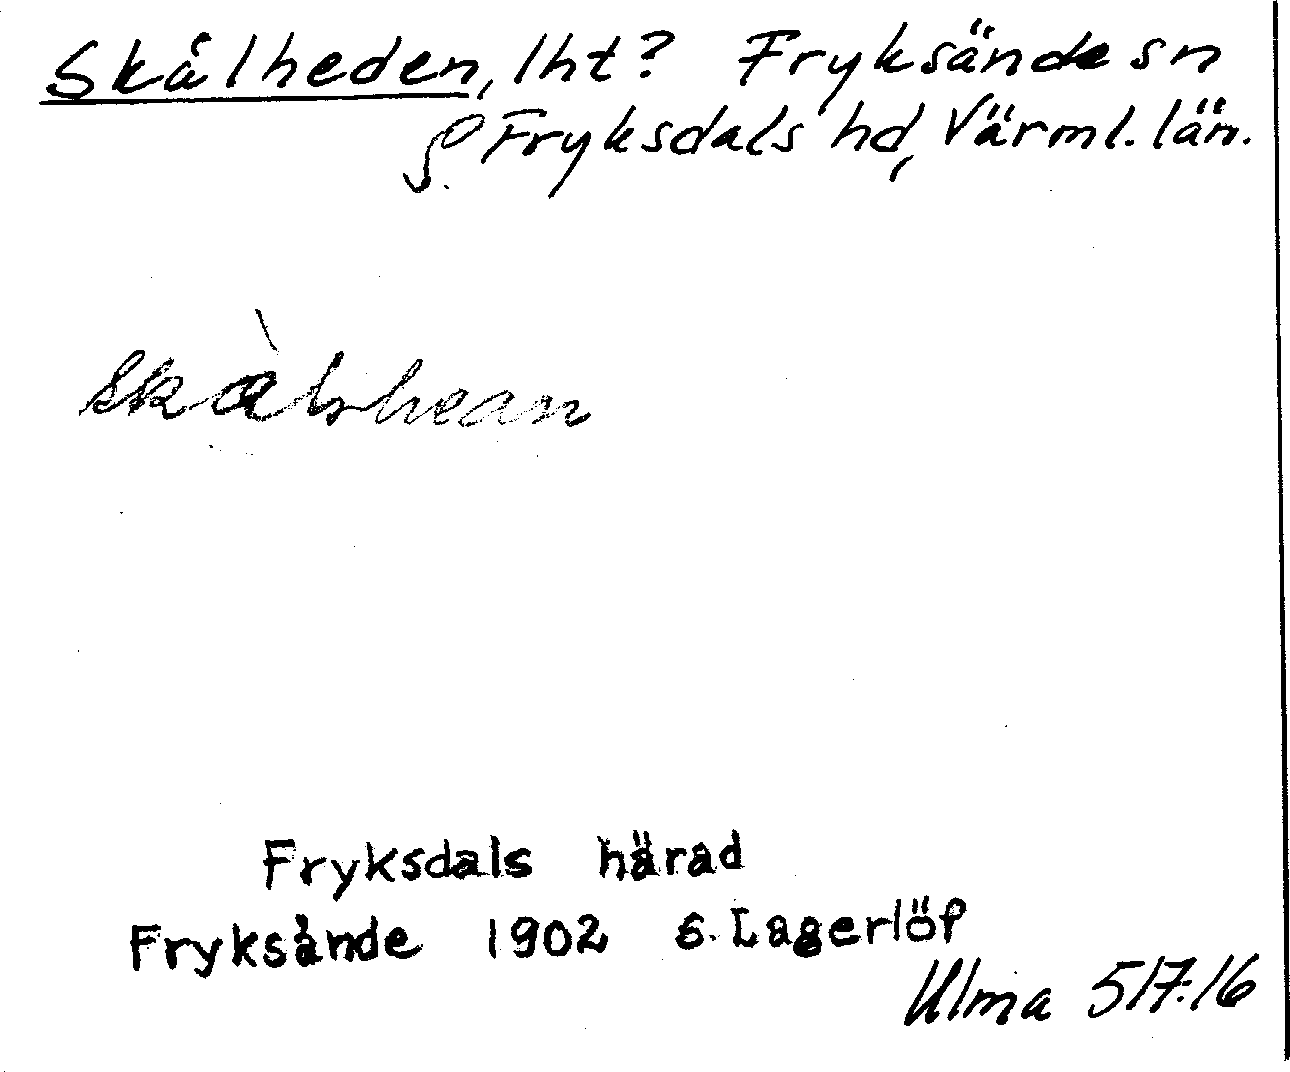 Skålheden, lht? Fryksände sn
Fryksdals hd, Värml. län.
skàlrhean
Fryksdals härad
Fryksände 1902 E. Lagerlöf
Ulma 517:16